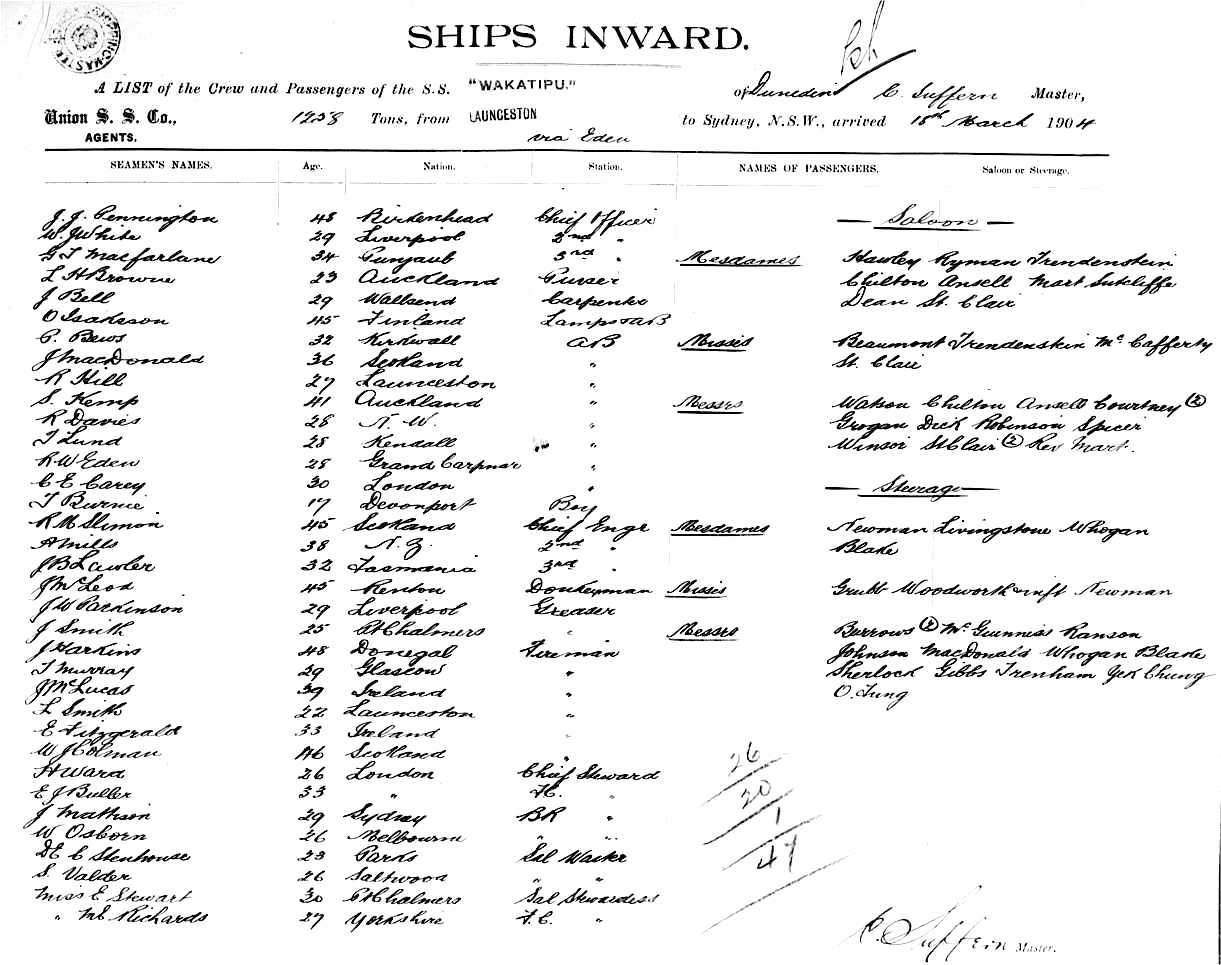 SHIPS INWARD.
A LIST of the Crew and Passengers of the S.S. "WAKATIPU." of Dunedin C. Suffern Master,
Union S. S. Co., 1258 Tons, from LAUNCESTON to Sydney, N.S.W., arrived 18th March 1904
AGENTS. via Eden
SEAMEN'S NAMES. Age. Nation. Station. NAMES OF PASSENGERS. Saloon or Steerage.
J. J. Pennington 48 Birkenhead Chief Officer — Saloon —
W. J White 29 Liverpool 2nd "
G T Macfarlane 34 Punjaub 3rd " Mesdames Hawley Ryman Trendenstein
L H Browne 23 Auckland Purser Chilton Ansell Mart Sutcliffe
J Bell 29 Wallsend Carpenter Dean St. Clair
O Isaksson 45 Finland Lamps & AB
P. Bews 32 Kirkwall AB Misses Beaumont Trendenstein McCafferty
J MacDonald 36 Scotland " St. Clair
R Hill 27 Launceston "
S. Kemp 41 Auckland " Messrs Watson Chilton Ansell Courtney (2)
R Davies 28 N. W. " Grogan Dick Robinson Spicer
T Lund 28 Kendall " Winsor St Clair (2) Rev Mart.
R W Eden 28 Grand "
C E Carey 30 London " — Steerage —
T Burnie 17 Devonport Boy
R M Slimon 45 Scotland Chief Engr Mesdames Newman Livingstone Whogan
A Mills 38 N. Z. 2nd " Blake
J B Lawler 32 Tasmania 3rd "
J McLeod 45 Renton Donkeyman Misses Grubb Woodworth Newman
J W Parkinson 29 Liverpool Greaser
J Smith 25 Pt Chalmers " Messrs Burrows (2) McGuinniss Ranson
J Harkins 48 Donegal Fireman Johnson MacDonald Whogan Blake
T Murray 29 Glascow " Sherlock Gibbs Trenham Yek Chung
J McLucas 39 Ireland " O. Tung
L Smith 22 Launceston "
E Fitzgerald 33 Ireland "
W J Colman 46 Scotland "
H Ward 26 London Chief Steward
E J Buller 33 " F.C. "
J Mathison 29 Sydney BR "
W Osborn 26 Melbourne " "
D E C Stenhouse 23 Parks Sal Waiter
S. Valder 26 Saltwood " "
Miss E Stewart 30 Pt Chalmers Sal Stewardess
" M E Richards 27 Yorkshire F.C. "
26
20
1
47
C. Suffern Master.